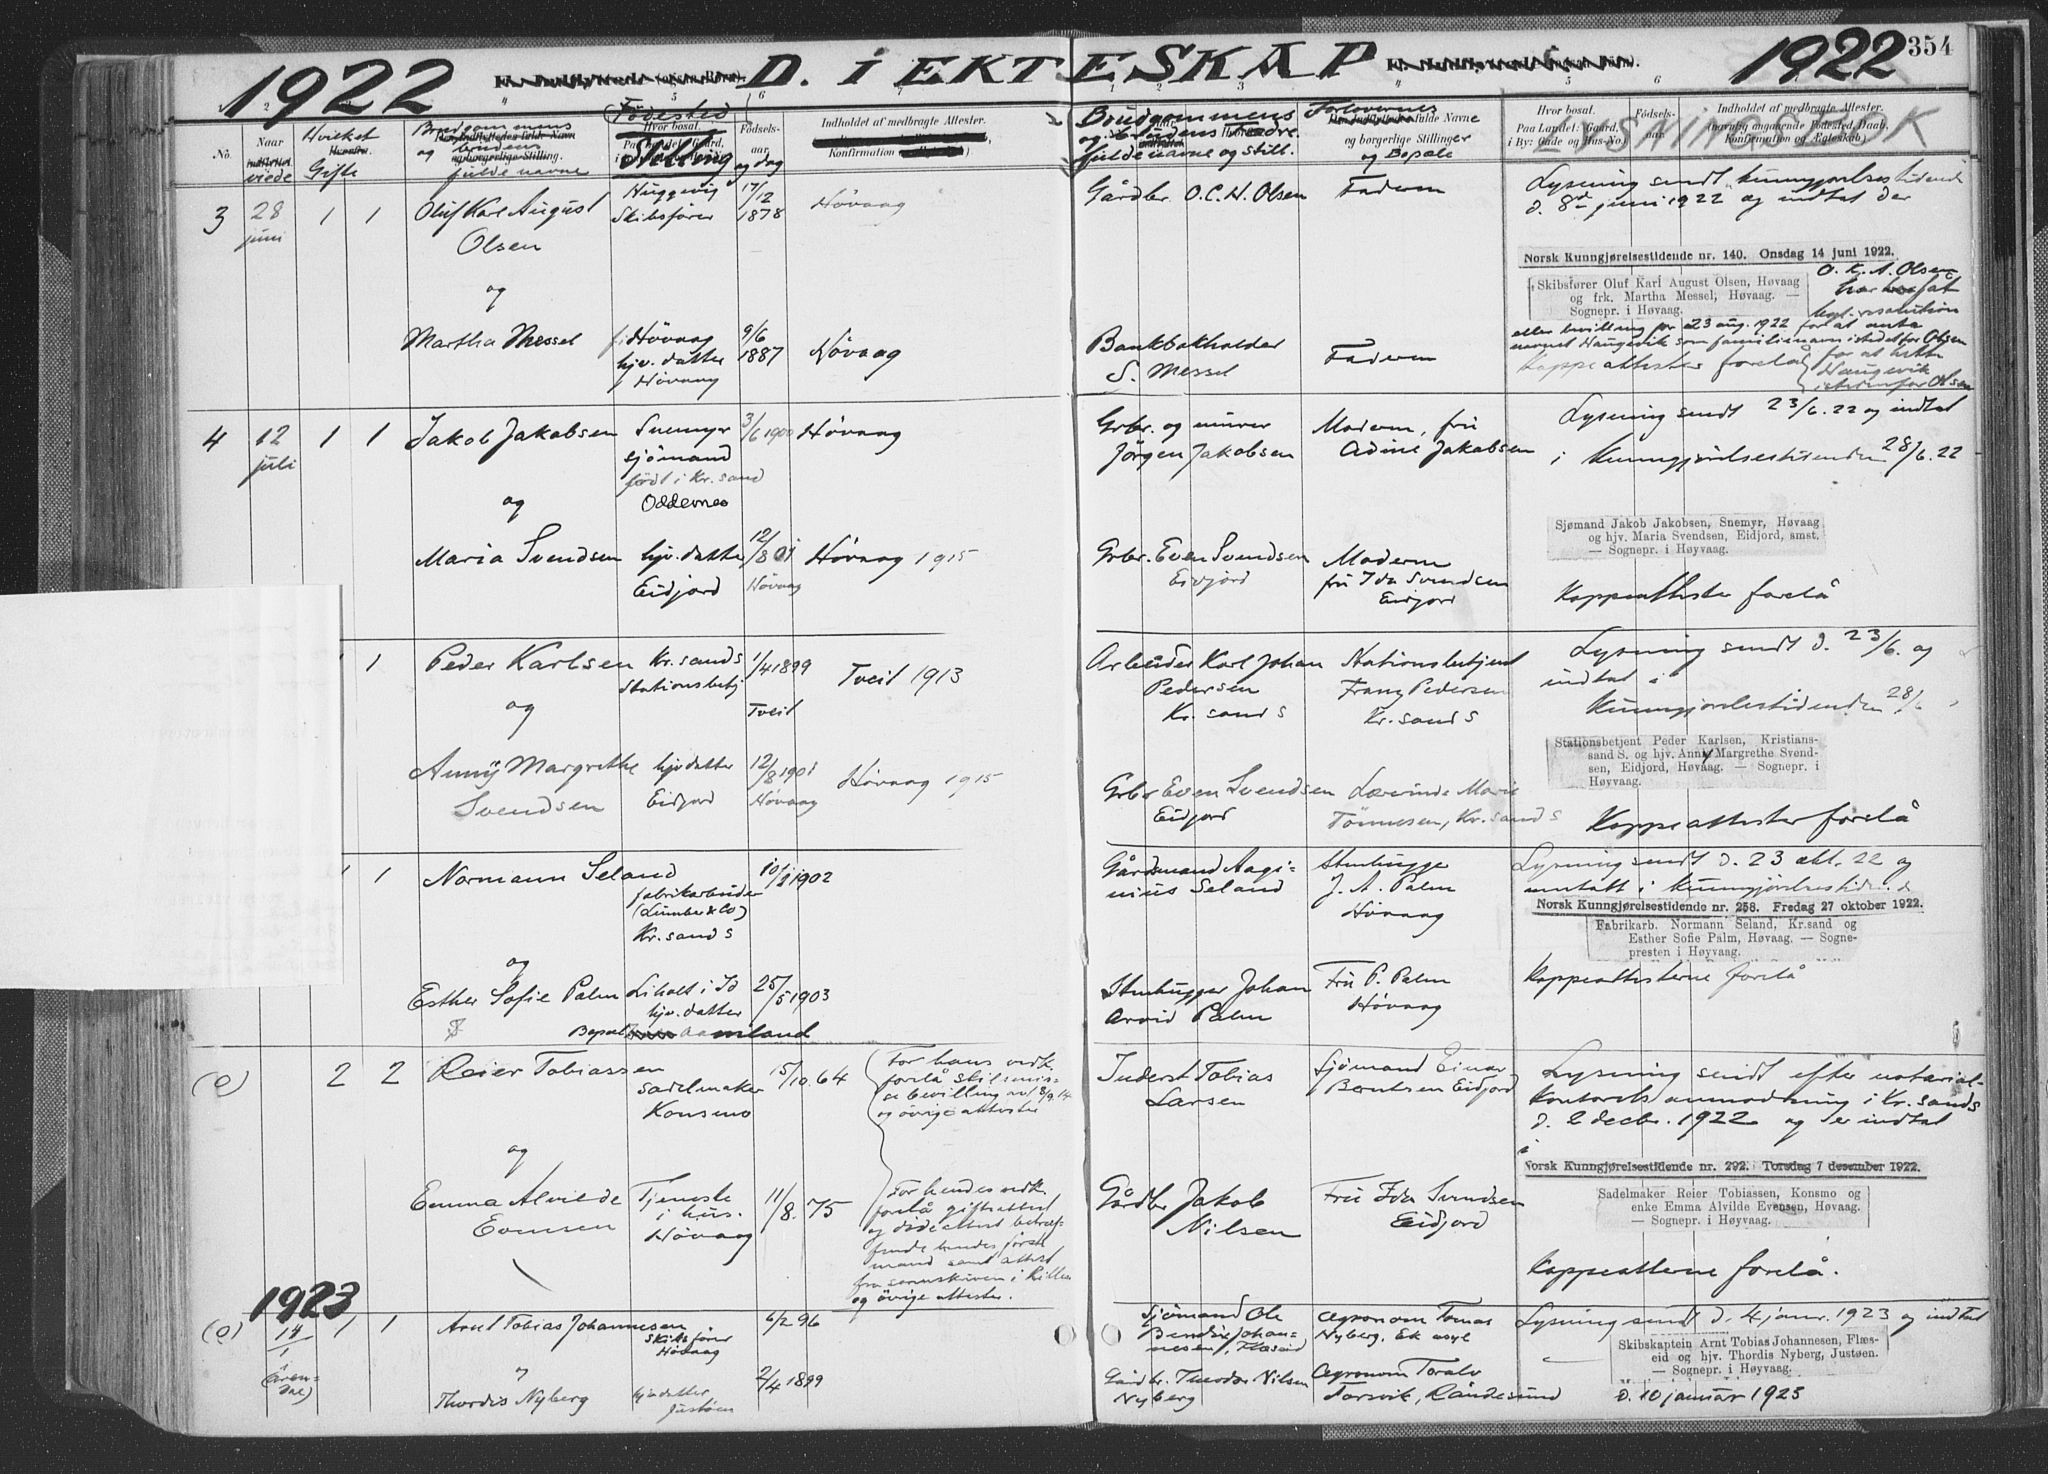 1922 D. I EKTESKAP 1922 354
LYSNINGSBOK
No.
Naar
viede
Hvilket
Gifte
Brudgommens
og brudens
fulde navne
Fødested
Hvor bosat.
Stilling
Fødsels-
aar
og dag
Indholdet af medbragte Attester.
Konfirmation
Brudgommens
og brudens fedre
fulde navne og still.
Forlovernes
fulde Navne
og borgerlige Stillinger
og Bopæle
Hvor bosat.
Paa Landet: Gaard,
i By: Gade og Hus-No.
Fødsels-
aar
Indholdet af medbragte Attester.
(navnlig angaaende Fødested, Daab,
Konfirmation og Ægteskab.)
3 28 juni 1 1
Oluf Karl August
Olsen
Skibsfører
17/12
1878
Høvaag
Gårdbr. O.C.N. Olsen
Faderen
Lysning sendt Kunngjørelsestidende
d. 8de juni 1922 og indtat der
Norsk Kunngjørelsestidende nr. 140. Onsdag 14 juni 1922.
Skibsfører Oluf Karl August Olsen, Høvaag
og frk. Martha Messel, Høvaag. —
Sognepr. i Høvaag.
O. K. A. Olsen
har fåt
kgl. resolution
eller bevilling av 23 aug. 1922 for at anta
navnet Haugevik som familienavn istedetfor Olsen
og
Martha Messel
Høvaag
hjv. datter
Høvaag
9/6
1887
Høvaag
Bankbokholder
S. Messel
Faderen
Koppeattester forelå
4 12 juli 1 1
Jakob Jakobsen
Snemyr
sjømand
født i Kr.sand
Oddernes
3/6 1900
Høvaag
Grbr. og murer
Jørgen Jakobsen
Moderen, fru
Adine Jakobsen
Lysning sendt 23/6.22 og indtat
i Kunngjørelsestidenden 28/6.22
og
Sjømand Jakob Jakobsen, Snemyr, Høvaag
og hjv. Maria Svendsen, Eidjord, smst.
— Sognepr. i Høyvaag.
Maria Svendsen
hjv. datter
Eidjord
12/8 01
Høvaag
Høvaag 1915
Grbr. Even Svendsen
Eidjord
Moderen
fru Ida Svendsen
Eidjord
Koppeattester forelå
1
Peder Karlsen
Kr.sand S
Stationsbetj
1/4 1899
Tveit
Tveit 1913
Arbeider Karl Johan
Pedersen
Kr. sand S
Stationsbetjent
Franz Pedersen
Kr. sand S
Lysning sendt d. 23/6. og
indtat i
Kunngjørelsestidenden 28/6
og
Stationsbetjent Peder Karlsen, Kristians-
sand S. og hjv. Anny Margrethe Svend-
sen, Eidjord, Høvaag. — Sognepr. i
Høyvaag.
Anny Margrethe
Svendsen
hjv datter
Eidjord
12/8 1901
Høvaag
Høvaag 1915
Grbr Even Svendsen
Eidjord
Lærerinde Marie
Tønnesen, Kr. sand S
Koppeattester forelå
1 1
Normann Seland
fabrikarbeider
(Lumber & Co)
Kr. sand S
1902
Gårdmand Aagi-
nius Seland
Stenhugge
J. A. Palm
Høvaag
Lysning sendt d. 23 okt. 22 og
inntatt i Kunngjørelsestiden.d
Norsk Kunngjørelsestidende nr. 258. Fredag 27 oktober 1922.
Fabrikarb. Normann Seland, Kr.sand og
Esther Sofie Palm, Høvaag. — Sogne-
presten i Høyvaag.
og
Esther Sofie Palm
hjv. datter
Bopæl
25/5 1903
Stenhugger Johan
Arvid Palm
Fru P. Palm
Høvaag
Koppeattesterne forelå
(0) 2 2
Reier Tobiassen
Sadelmaker
Konsmo
15/10.64
For hans vedk.
forelå skilsmis-
sebevilling av
og øvrige attester
Inderst Tobias
Larsen
Sjømand Einar
Berntsen Eidjord
Lysning sendt efter notarial-
kontorets anmodning i Kr. sand S
d. 2 decbr. 1922 og er indtat
i
Norsk Kunngjørelsestidende nr. 292. Torsdag 7 desember 1922.
Sadelmaker Reier Tobiassen, Konsmo og
enke Emma Alvilde Evensen, Høvaag.
— Sognepr. i Høyvaag.
og
Emma Alvilde
Evensen
Tjeneste
i hus.
Høvaag
11/8.75
For hendes vedk.
forelå giftsattest
og dødsattest betræf-
fende hendes første
mand samt attest
fra sorenskriven i
og øvrige attester.
Gårdbr Jakob
Nilsen
Fru Ida Svendsen
Eidjord
Koppeatterne forelå.
1923
(0) 14/1 1 1
(Aren-
dal)
Arnt Tobias Johannesen
Skibsfører
Høvaag
6/2 96
Sjømand Ole
Bendix Johan-
nesen, Flæseid
Agronom Tomas
Nyberg,
Lysning sendt d. 4 janr. 1923 og indtat
Skibskaptein Arnt Tobias Johannesen, Flæs-
eid og hjv. Thordis Nyberg, Justøen.
— Sognepr. i Høyvaag.
"
Thordis Nyberg
hjv datter
Justøen
2/4 1899
Gårdbr. Theodor Nilsen
Nyberg
Agronom Toralv
Torsvik, Randesund
d. 10 januar 1923